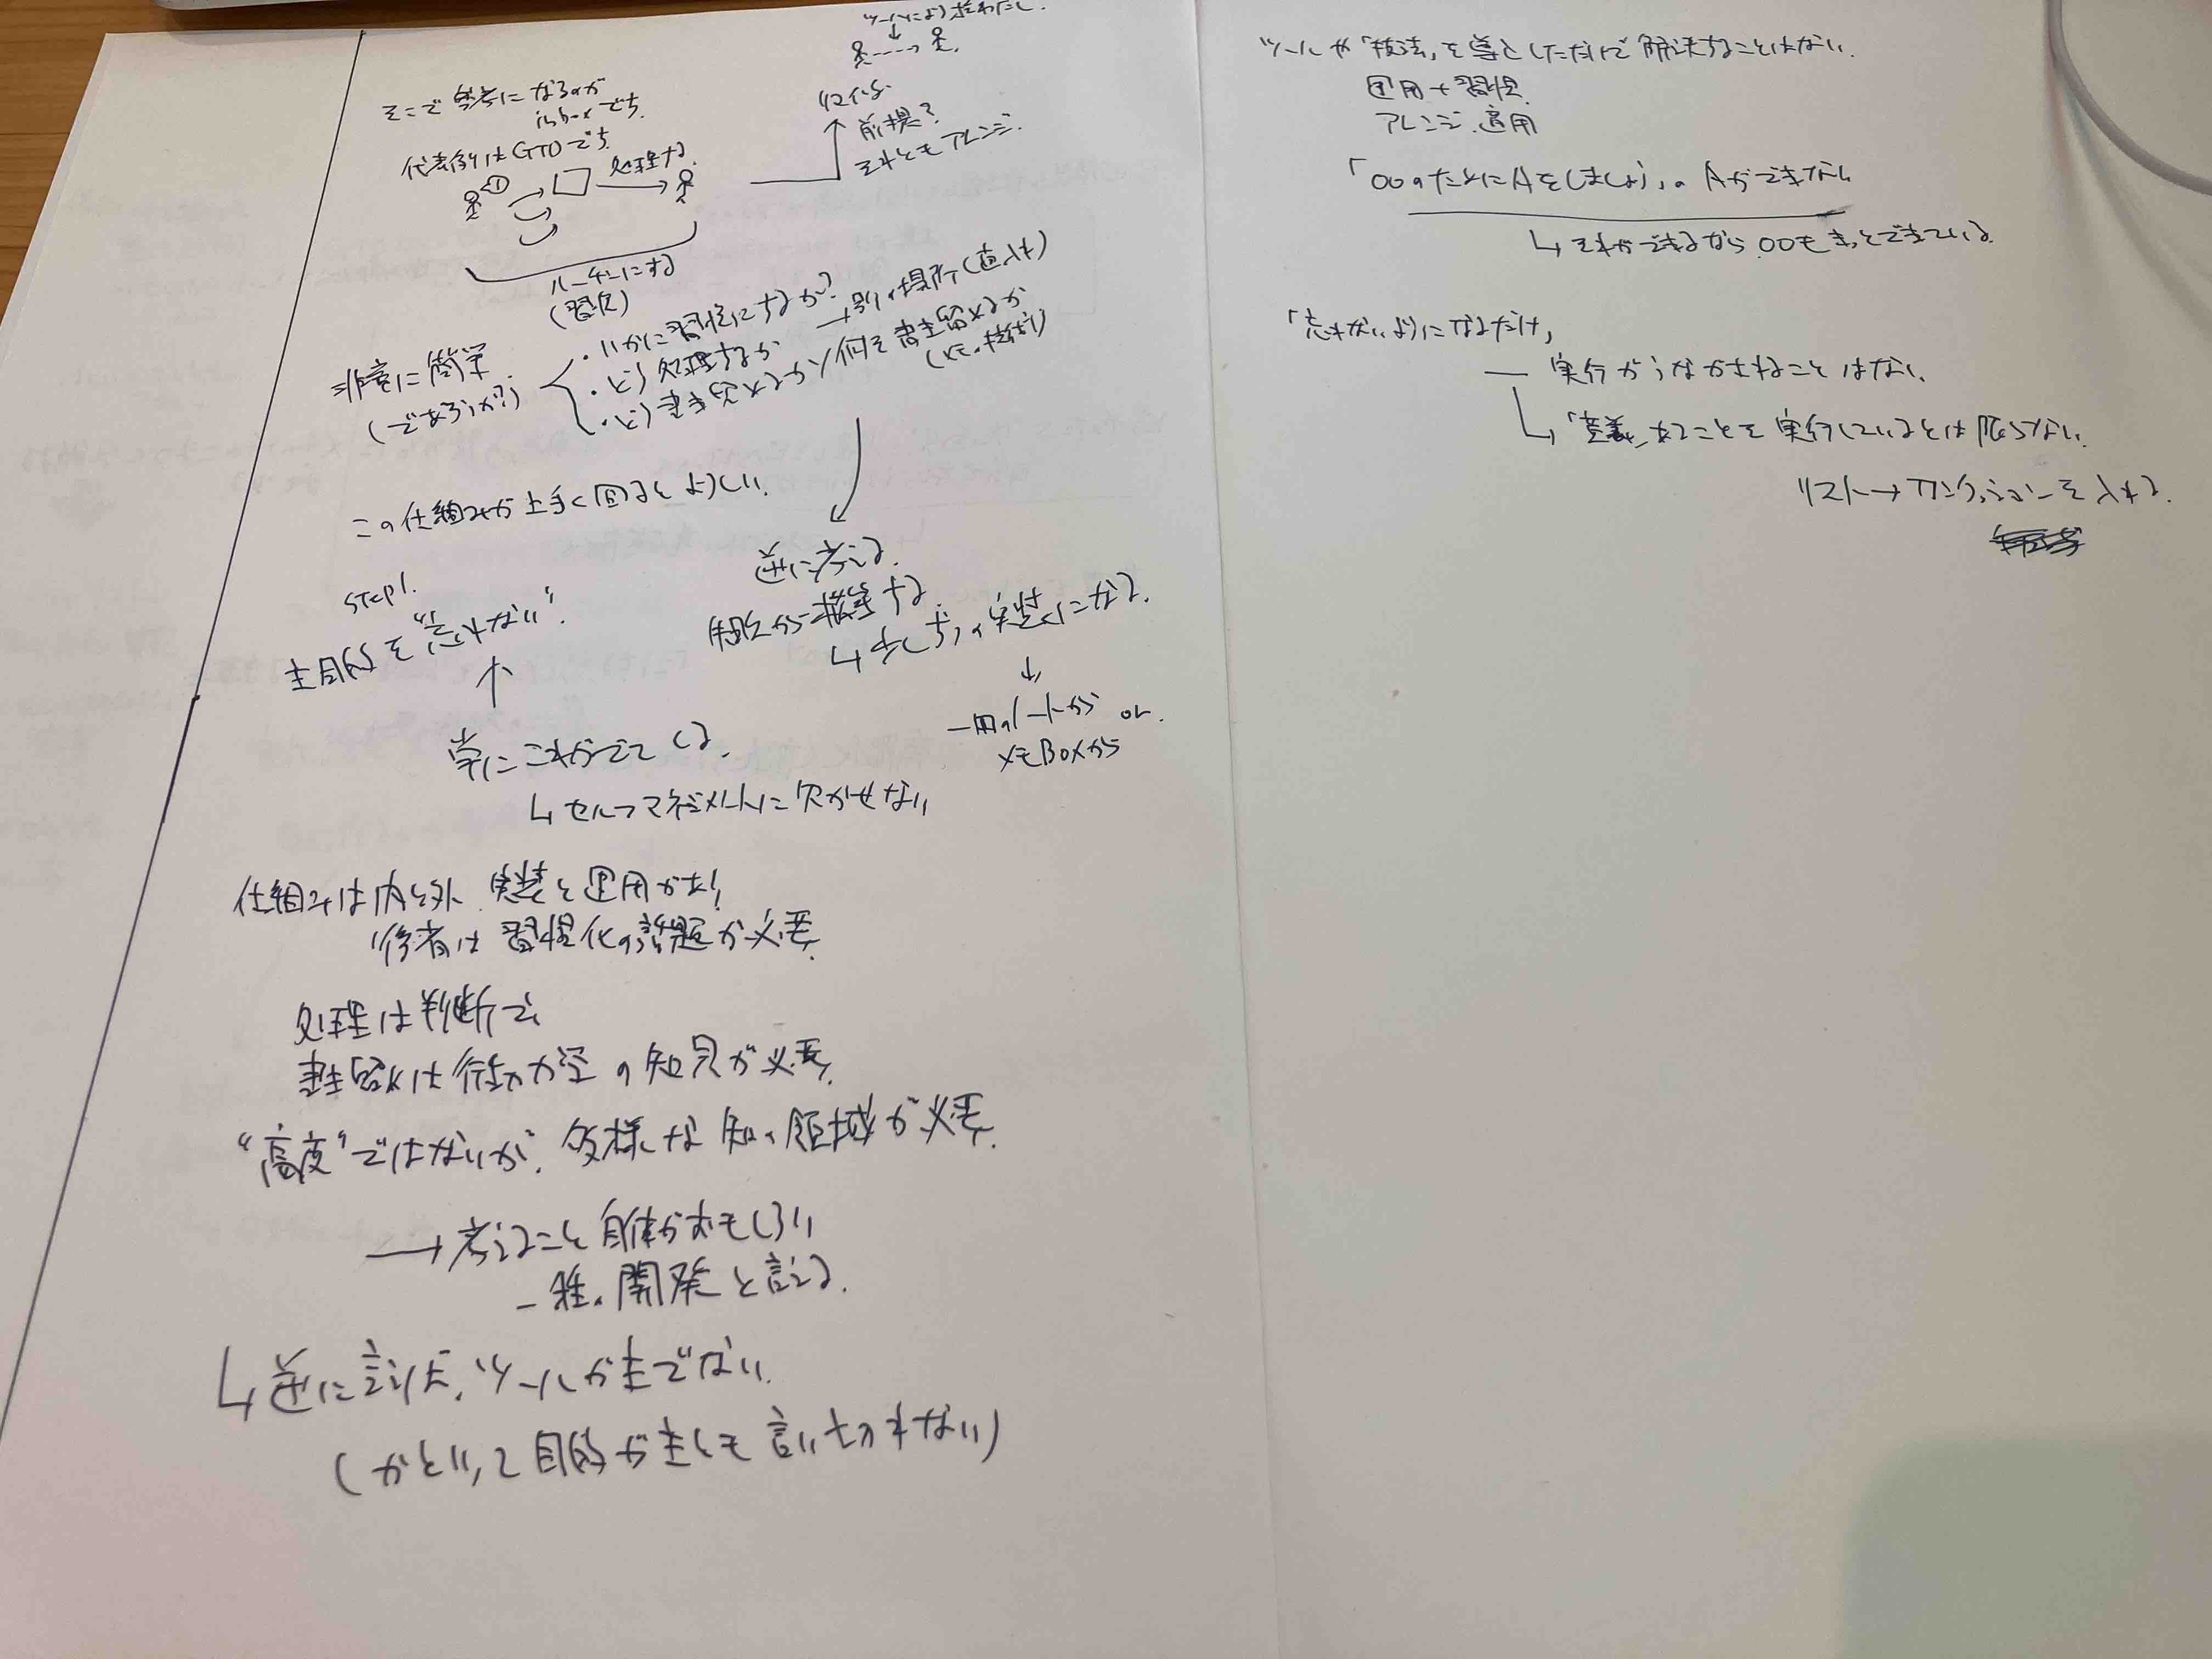 そこで参考になるのが
inboxです。
代表例はGTDです。
処理する
ルーチンにする
(習慣)
ツールにより
前提?
それともアレンジ.
非常に簡単
(であろうか?)
・いかに習慣にするか?
・どう処理するか
・どう書き留めるか/何を書き留めるか
→別の場所(直入れ)
この仕組みが上手く回るとよろしい.
STEP1.
主目的を“忘れない”.
常にこれがでてくる.
↳セルフマネジメントに欠かせない
逆に考える.
↓
ノートから or.
メモBoxから
仕組みは内と外.実装と運用がある!
後者は習慣化の話題が必要.
処理は判断で
書き留めは行動の知見が必要.
“高度”ではないが.多様な知の領域が必要.
→考えること自体がおもしろい
一種の開発と言える.
↳逆に言えば.ツールが主でない.
(かといって目的が主とも言い切れない)
ツールや「技法」を導入しただけで解決することはない.
運用+習慣.
アレンジ.適用
「〇〇のためにAをしましょう」のAができない
↳それができるなら.〇〇もきっとできている.
「忘れないようになるだけ」
— 実行がうながされることはない.
↳「意義」あることを実行しているとは限らない.
リスト→アンクションを入れる.